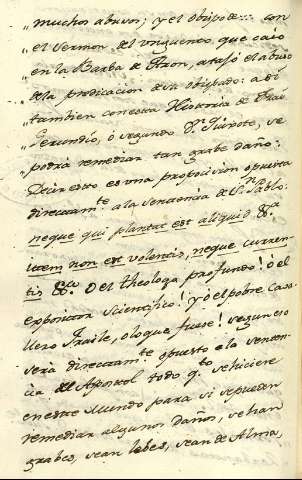 „ muchos abusos; y el obispo de::: con
„ el Sermon del Unguento, que caio
„ en la Barba de Aron, atajó el abuso
„ de la predicacion de su obispado: asi
„ tambien con esta Historia de Frai
„ Gerundio, ò segundo Dn. Quixote, se
„ podrà remediar tan grabe daño.
Decir esto es una proposicion opuesta
directamte. a la Sentencia de Sn. Pablo:
neque qui plantat est aliquid &a.
item non est volentis, neque curren-
tis &c. O el theologo profundo! ò el
expositor scientifico! y ò el pobre Caba-
llero Fraile, o lo que fuere! segun eso
serà directamte. opuesto a la senten-
cia del Apostol todo qto. se hiciere
en este Mundo para si se pueden
remediar algunos daños, sean
grabes, sean lebes, sean de Alma,